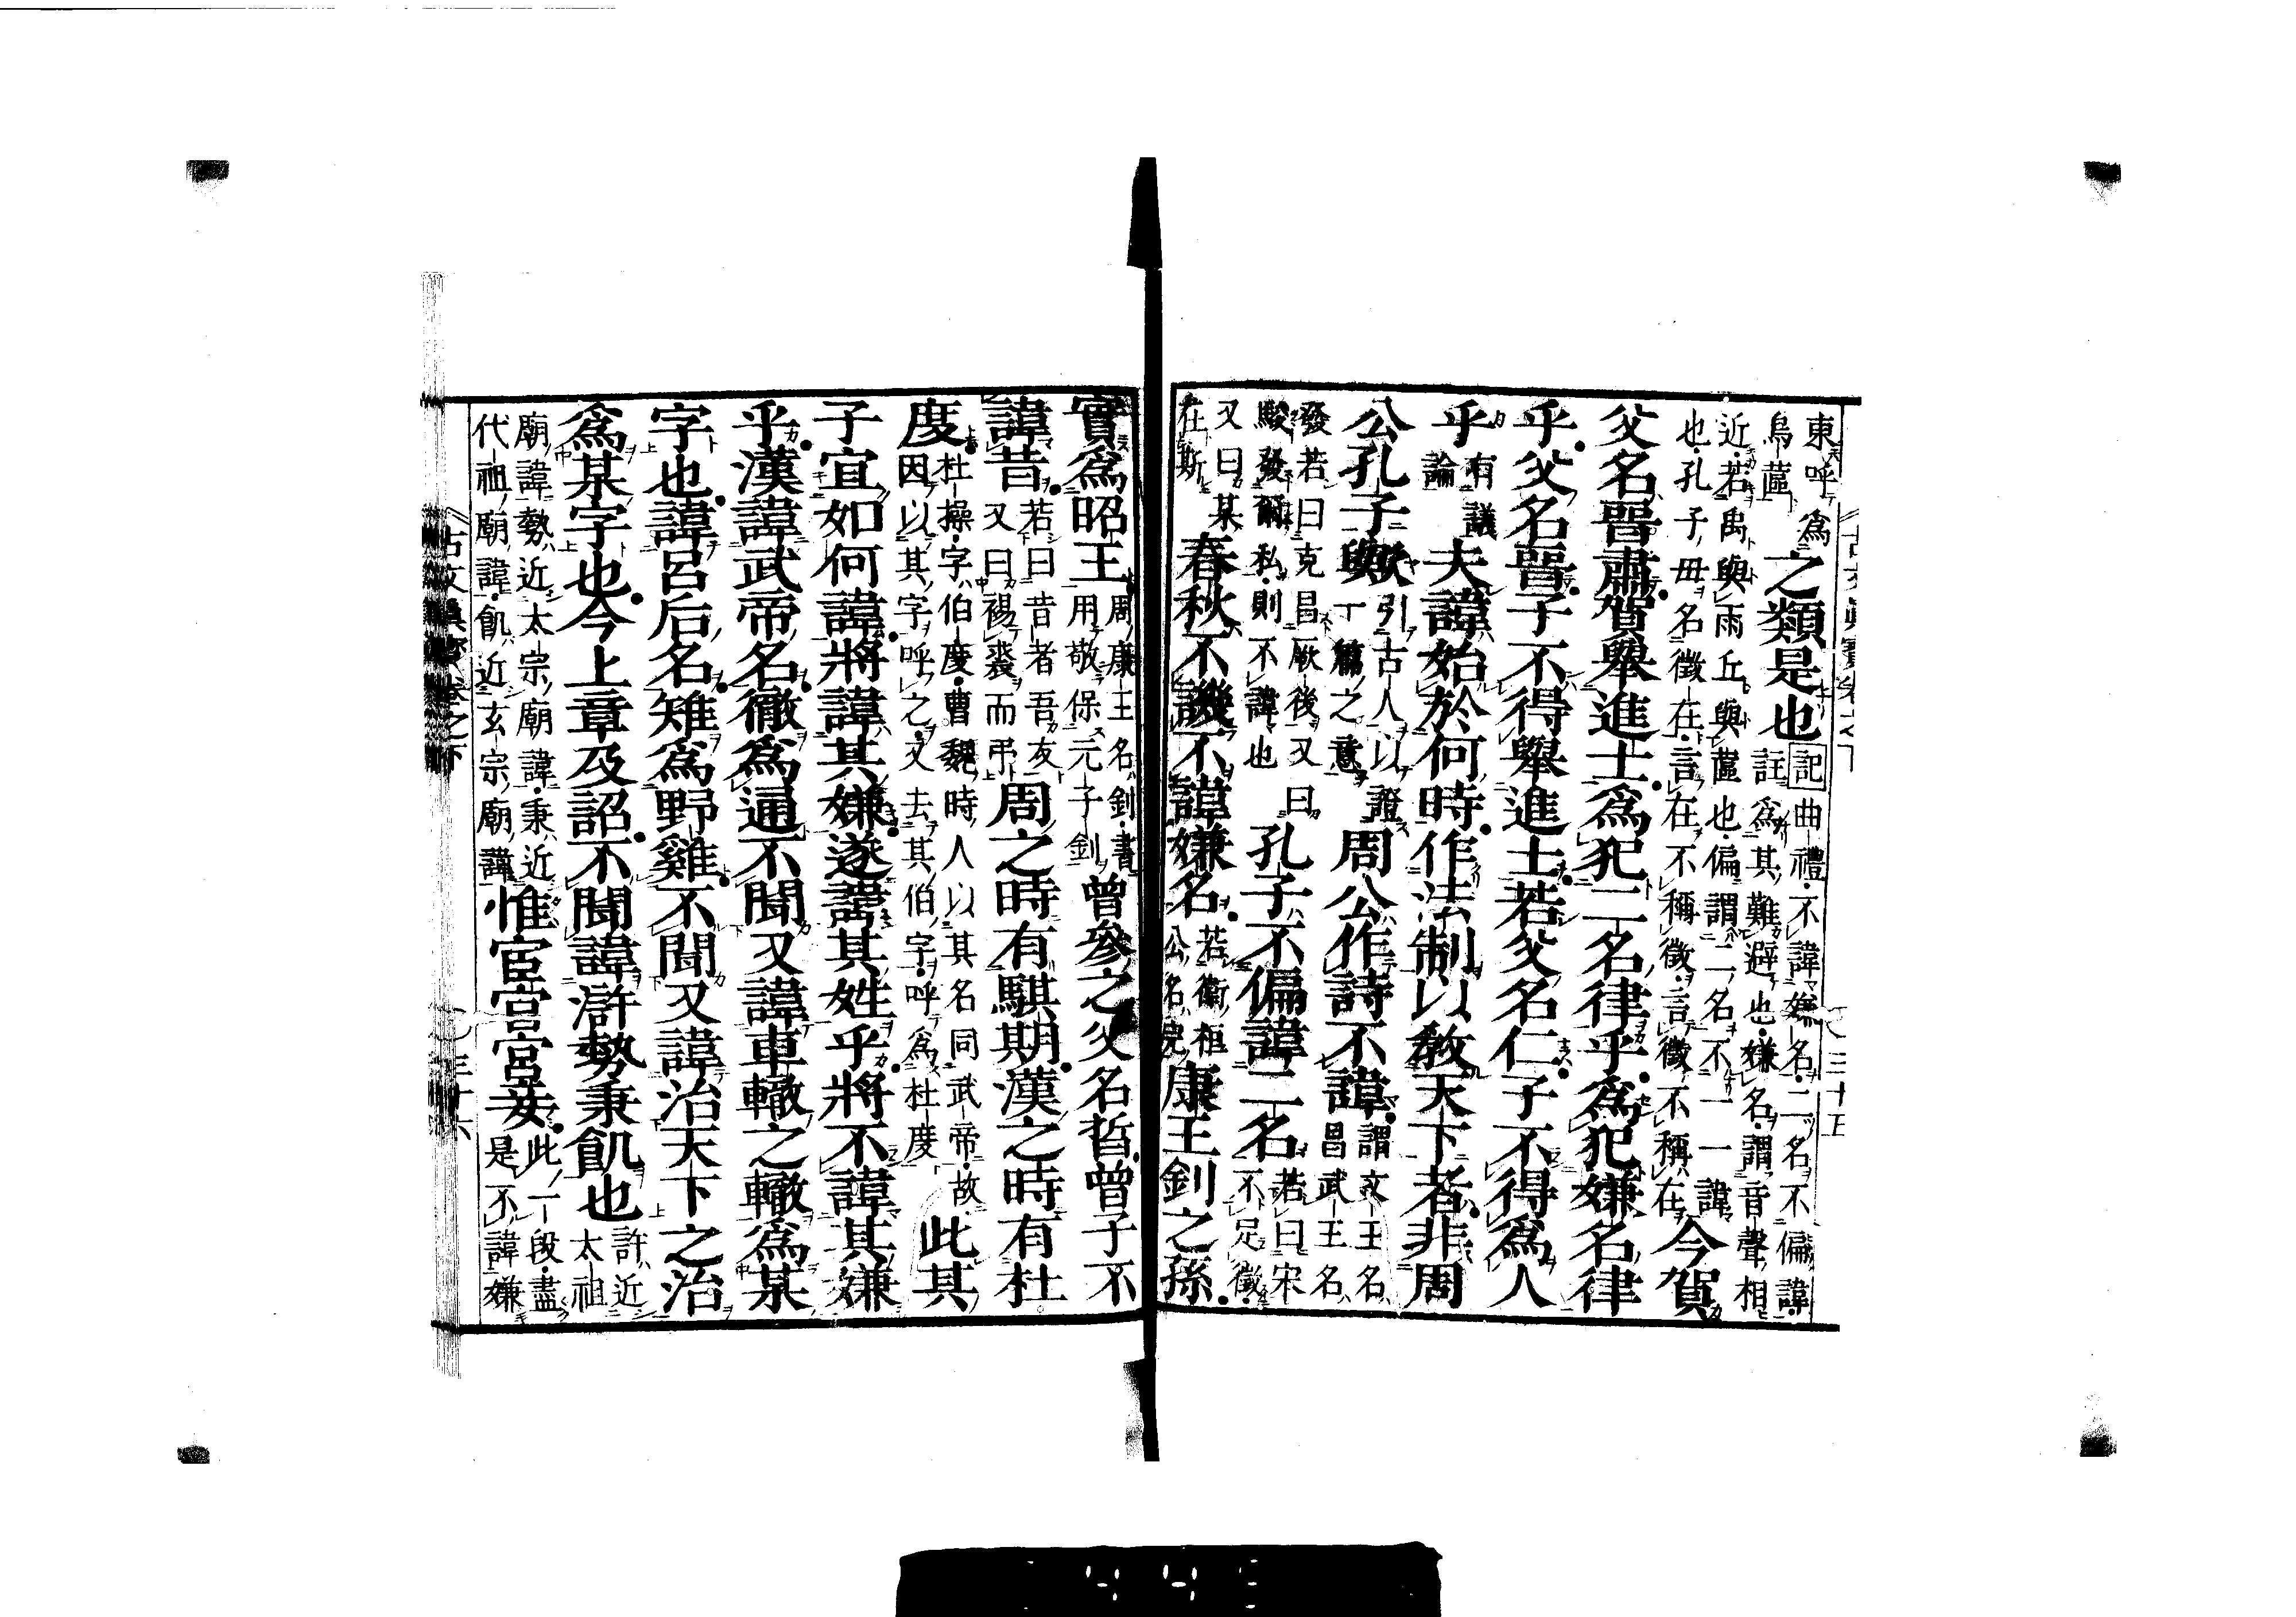 東呼爲
烏蓲
之類是也
記曲禮不諱嫌名二名不偏諱
註爲其難避也嫌名謂音聲相
近若禹與雨丘與蓲也偏謂二名不一一諱
也孔子毋名徵在言在不稱徵言徵不稱在
今賀
父名晋肅賀舉進士爲犯二名律乎爲犯嫌名律
乎父名晋子不得舉進士若父名仁子不得爲人
乎
有議
論
夫諱始於何時作法制以敎天下者非周
公孔子歟
引古人以證
與丁篇之意
周公作詩不諱
謂文王名
昌武王名
發若曰克昌厥後又曰
駿發爾私則不諱也
孔子不偏諱二名
若曰宋
不足徵
又曰某
在斯
春秋不譏不諱嫌名
若衛桓
公名完
康王釗之孫
實爲昭王
周康王名釗書
用敬保元子釗
曾參之父名晳曾子不
諱昔
若曰昔者吾友
又曰裼裘而弔
周之時有騏期漢之時有杜
度
杜操字伯度曹魏時人以其名同武帝故
因以其字呼之又去其伯字呼爲杜度
此其
子宜如何諱將諱其嫌遂諱其姓乎將不諱其嫌
乎漢諱武帝名徹爲通不聞又諱車轍之轍爲某
字也諱呂后名雉爲野雞不聞又諱治天下之治
爲某字也今上章及詔不聞諱滸勢秉飢也
許近
太祖
廟諱勢近太宗廟諱秉近
代祖廟諱飢近玄宗廟諱
惟宦官宮妾
此一段盡
是不諱嫌